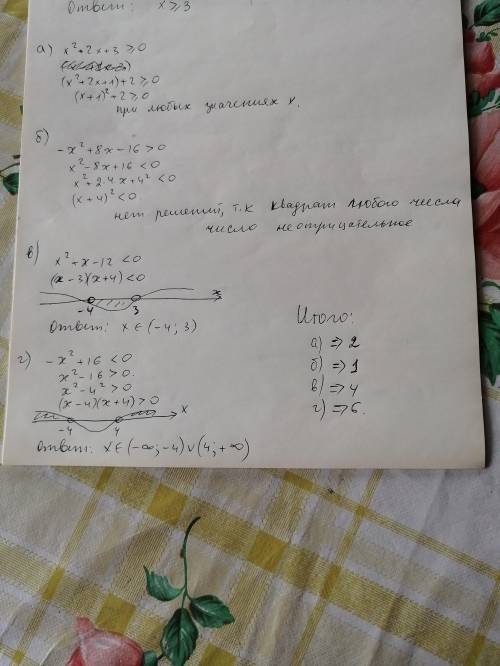 Ответ: x ⩾ 3
а) x²+2x+3 ⩾0
(x²+2x+1)+2⩾0
(x+1)²+2⩾0
при любых значениях x.
б)
-x²+8x-16>0
x²-8x+16<0
x²+2·4x+4²<0
(x+4)²<0
нет решений, т.к квадрат любого числа
число неотрицательное
в) x²+x-12<0
(x-3)(x+4)<0
-4 3 x
Ответ: x∈(-4; 3)
г) -x²+16<0
x²-16>0.
x²-4²>0
(x-4)(x+4)>0
-4 4 x
Ответ: x∈(-∞;-4)∪(4;+∞)
Итого:
а) ⇒ 2
б) ⇒ 1
в) ⇒ 4
г) ⇒ 6.